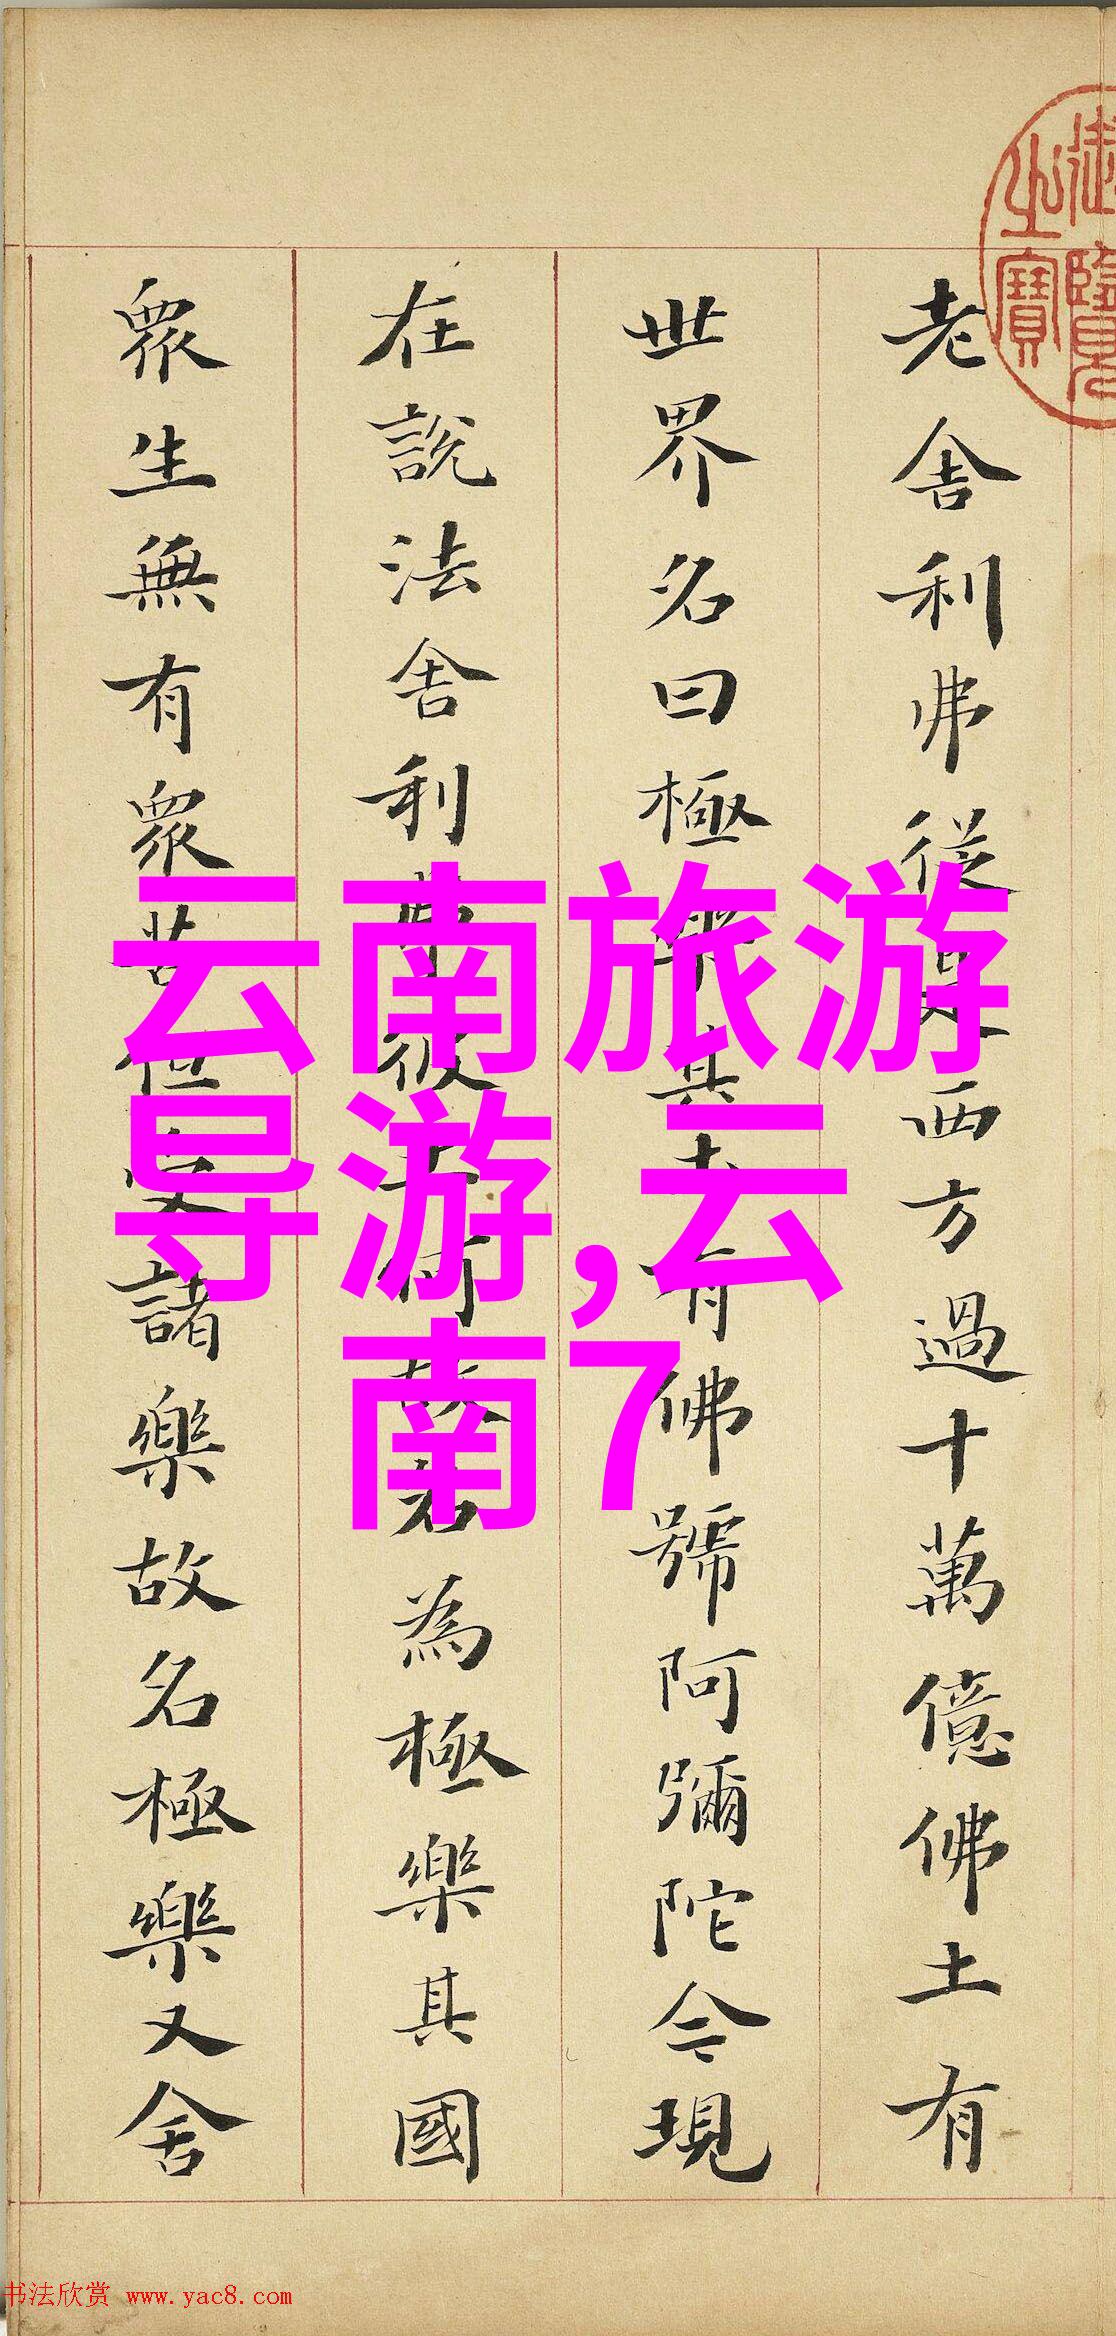 御覽之寶
老舍利弗從是西方過十萬億佛土有
世界名曰極樂其土有佛號阿彌陀今現
在說法舍利弗彼土何故名為極樂其國
眾生無有眾苦但受諸樂故名極樂又舍
云南旅游
导游,云
南7
书法欣赏 www.yac8.com